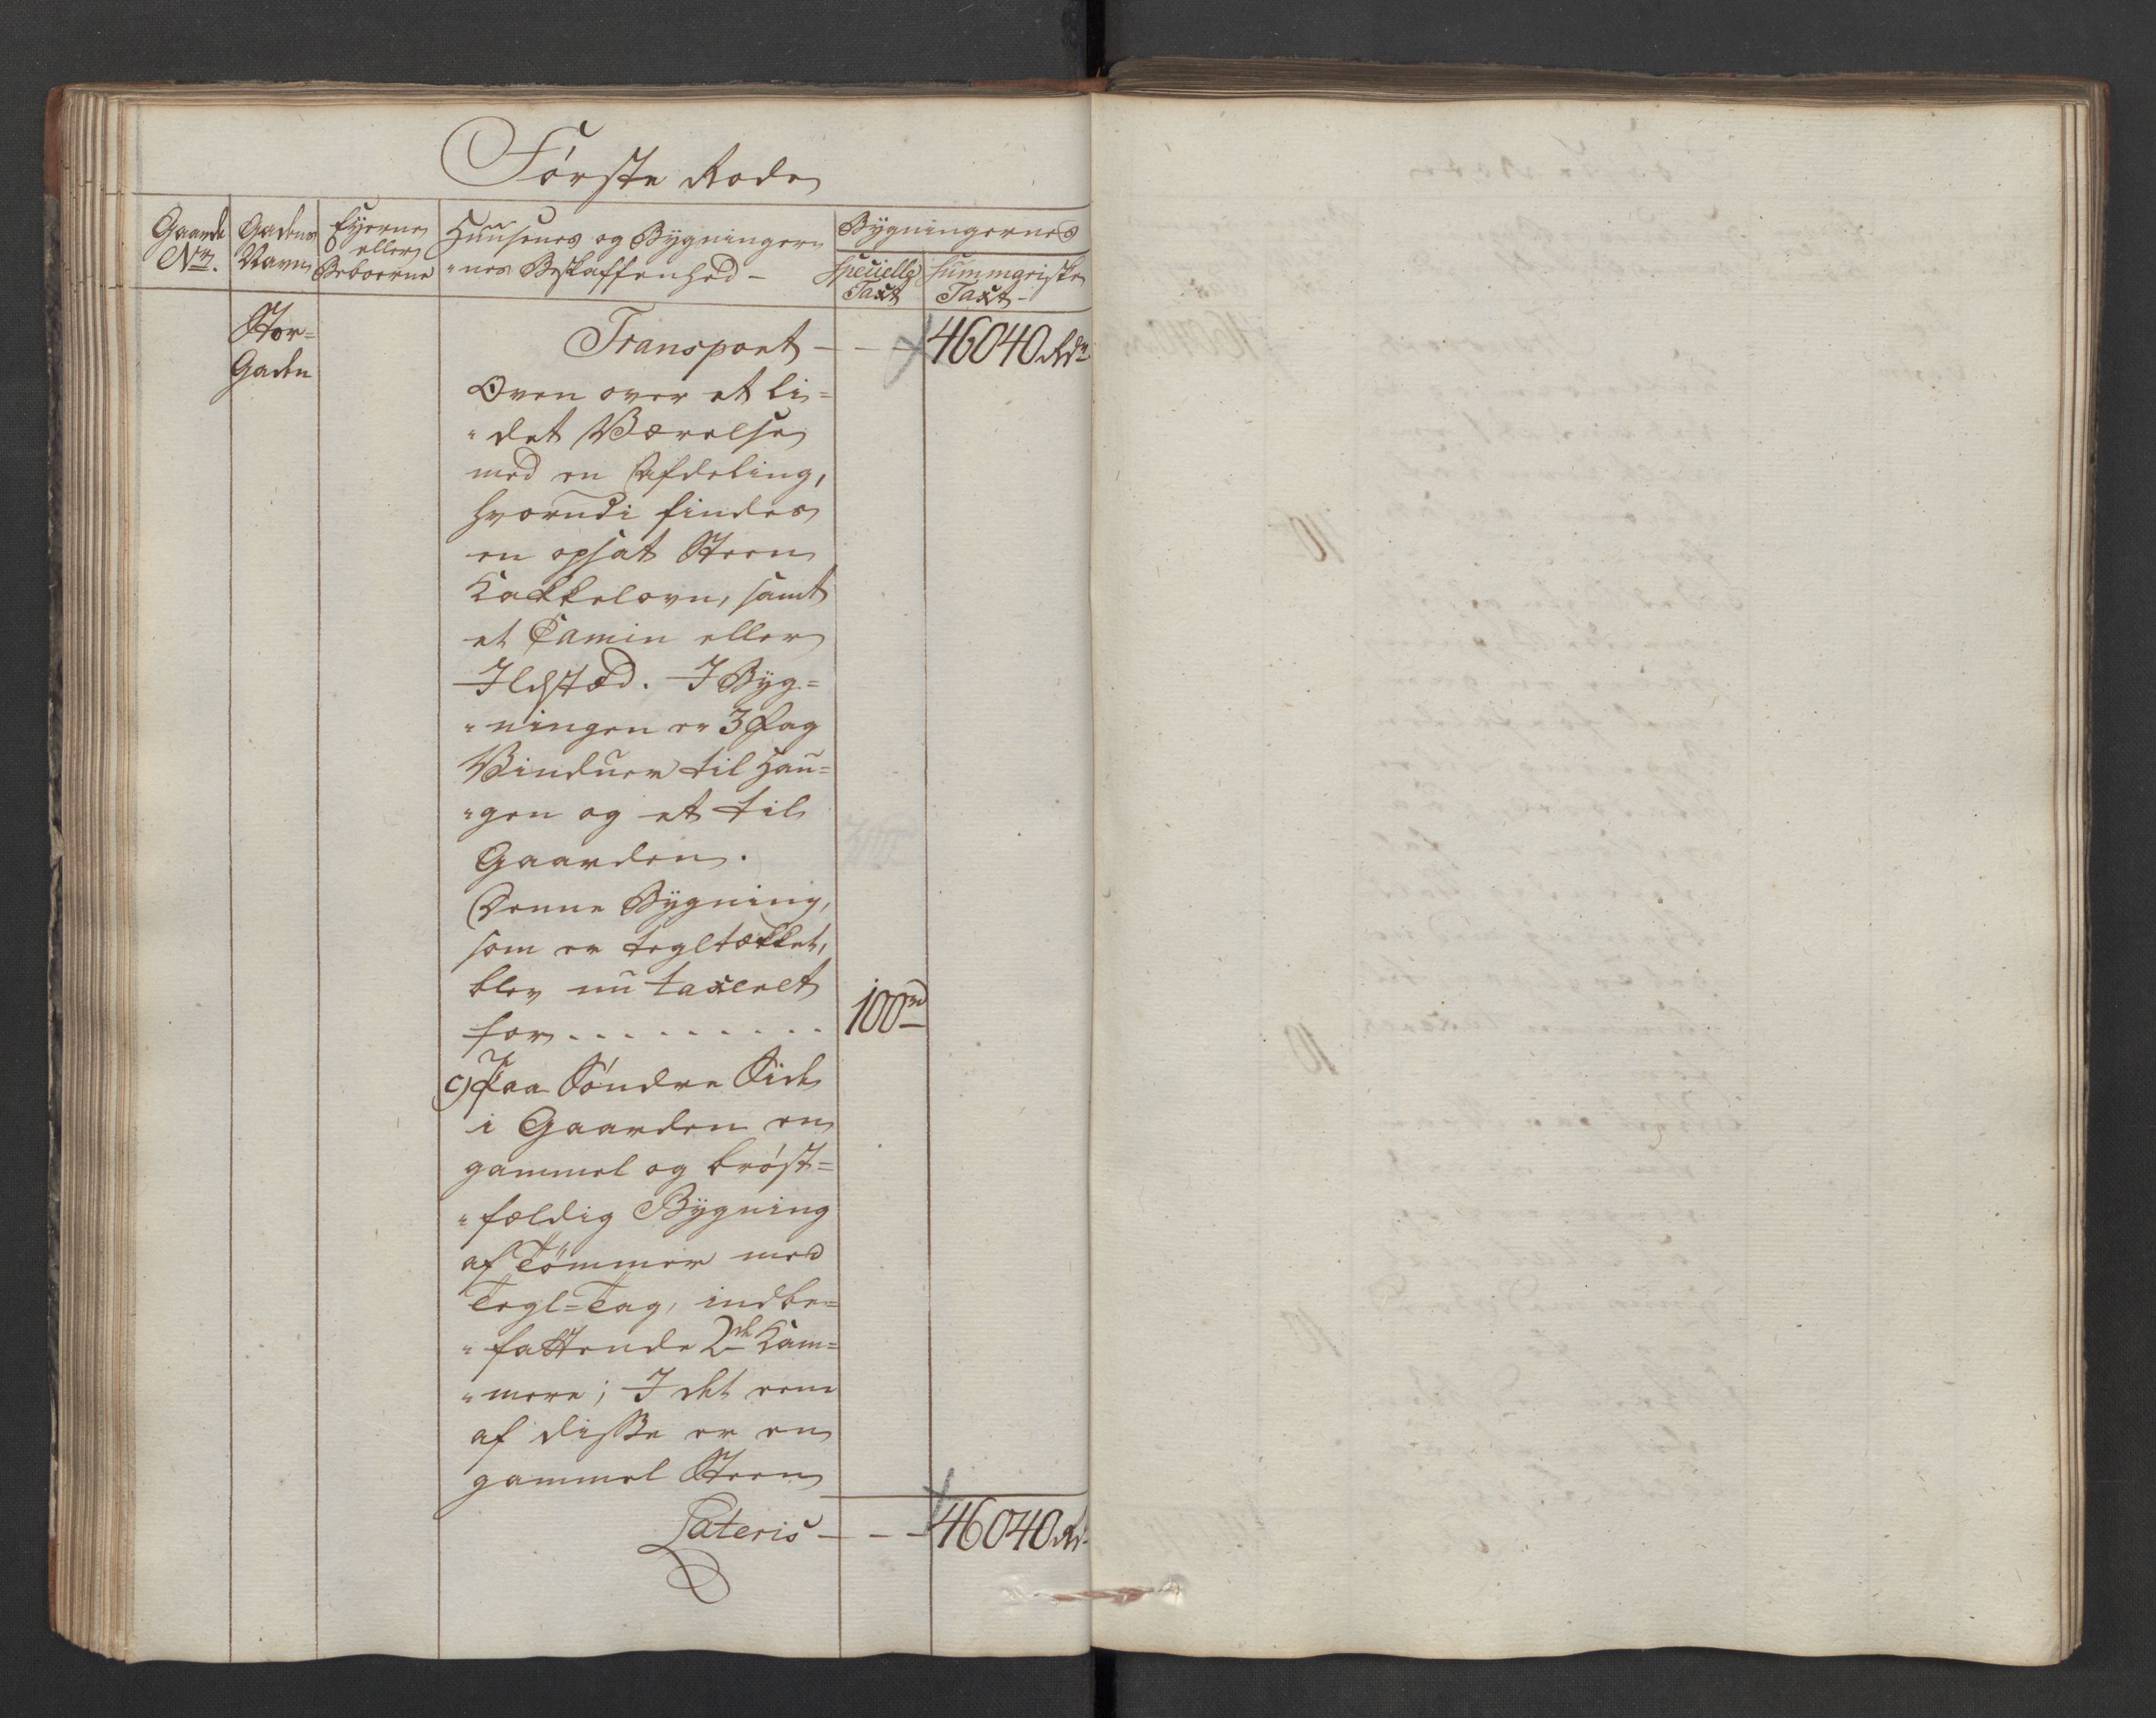 Første Rode
Gaards Nr.
Gadens Navn
Eyerne eller Beboerne
Huusenes og Bygninger-
"nes Beskaffenhed -
Bygningernes
Specielle Taxt
Summariske Taxt -
Stor=
Gaden
Transport - - - 46040 Rdr
Oven over et li=
"det Værelse
med en Afdeling,
hvorudi findes
en opsat Steen
Kakkelovn, samt
et Camin eller
Ildstæd. I Byg=
"ningen er 3 Fag
Vinduer til Hau=
"gen og et til
Gaarden.
Denne Bygning,
som er tegltækket,
blev nu taxeret
for . . . . . . . . . 100rd
c) Paa Søndre Side
i Gaarden en
gammel og brøst=
"fældig Bygning
af Tømmer med
Tegl=Tag, indbe=
"fattende 2de Kam=
"mere; I det eene
af disse er en
gammel Steen
Lateris - - - 46040 Rd